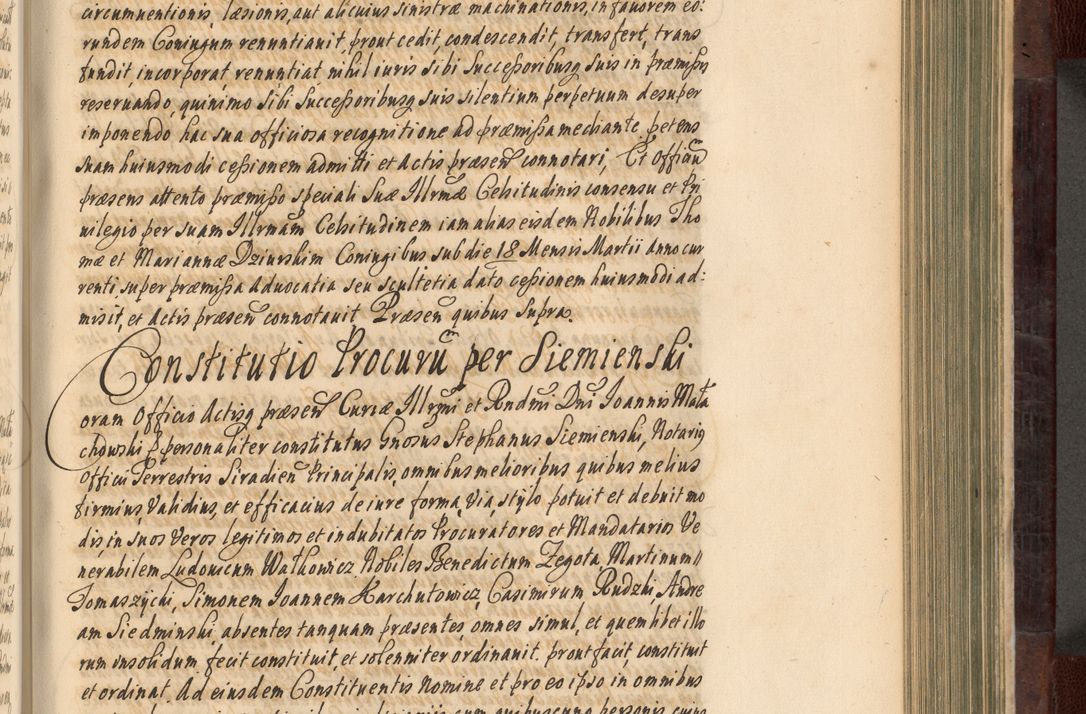 circumventionis, læsionis, aut alicuius sinistræ machinationis, in favorem eo:
rundem Coniugum renuntiavit, prout cedit, condescendit, transfert, trans
fundit, incorporat renuntiat nihil iuris sibi Successoribusq suis in præmissis
reservando, quinimo sibi Successoribusq suis silentium perpetuum desuper
imponendo hac sua officiosa recognitione ad præmissa mediante, petens
suam huiusmodi cessionem admitti et Actis præsen connotari, Et Officiu
præsens attento præmisso speciali Suæ Illrmæ Celsitudinis consensu et Pri
vilegio per suam Illrmam Celsitudinem iam alias eisdem Nobilibus Tho
mæ et Mariannæ Dziurskim Coniugibus sub die 18 Mensis Martii anno cur
renti, super præmissa Advocatia seu scultetia dato cessionem huiusmodi ad:
misit, et Actis præsen connotavit Præsen quibus supra.
Constitutio Procuru per Siemienski
Coram Officio Actisq præsen Curiæ Illrmi et Rndmi Dni Joannis Mała
chowski personaliter constitutus Gnosus Stephanus Siemienski, Notarig
Officii Terrestris Siradien Principalis, omnibus melioribus quibus melius
firmius, validius, et efficacius de iure forma, via, stylo potuit et debuit mo
dis, in suos Veros legitimos et indubitatos Procuratores et Mandatarios Ve
nerabilem Ludovicum Wałkowicz Nobiles Benedictum Zegota, Martinum
Tomaszycki, Simonem Joannem Karchutowicz, Casimirum Rudzki, Andre
am Siedminski, absentes tanquam præsentes, omnes simul, et quemlibet illo
rum insolidum fecit constituit, et solenniter ordinavit. prout facit, constituit
et ordinat. Ad eiusdem Constituentis Nomine et pro eo ipso in omnibus